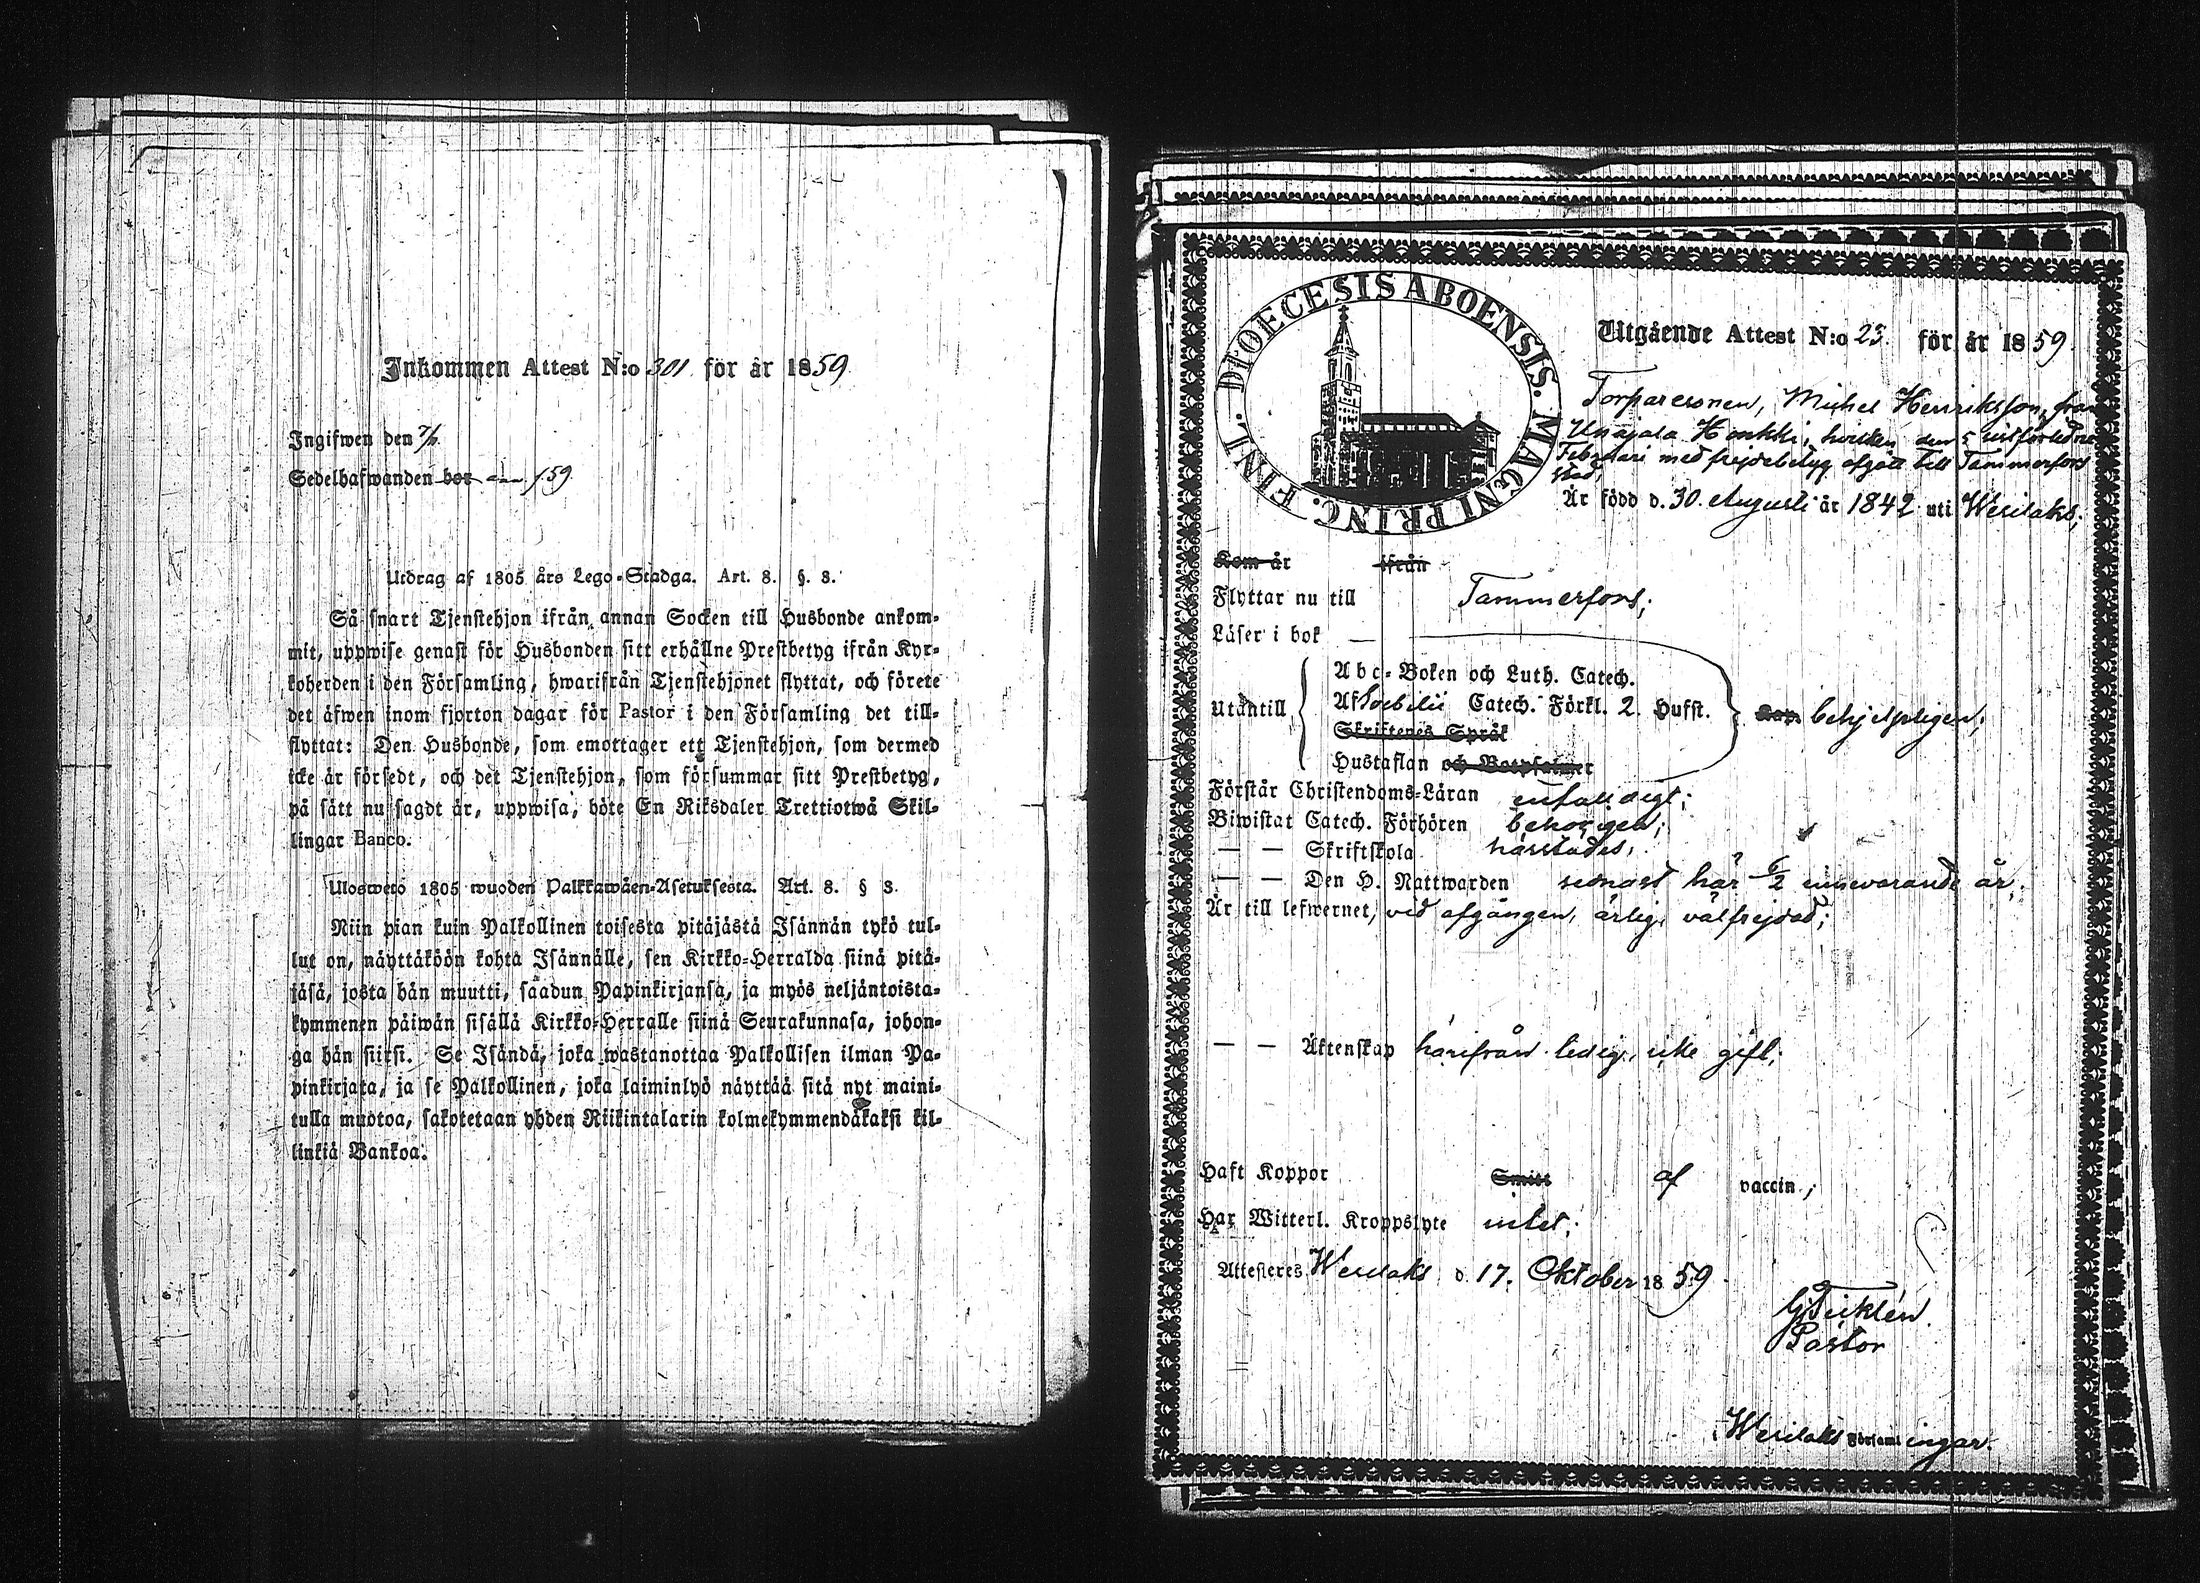 Inkommen Attest N:o 301 för år 1859.
Ingifwen den 7/11
Sedelhafwanden bor 159
Utdrag af 1805 års Lego-Stadga. Art. 8. §. 3.
Så snart Tjenstehjon ifrån annan Socken till Husbonde ankom-
mit, uppwise genast för Husbonden sitt erhållne Prestbetyg ifrån Kyr-
koherden i den Församling, hwarifrån Tjenstehjonet flyttat, och förete
det äfwen inom fjorton dagar för Pastor i den Församling det till-
flyttat: Den Husbonde, som emottager ett Tjenstehjon, som dermed
icke är försedt, och det Tjenstehjon, som försummar sitt Prestbetyg,
på sätt nu sagdt är, uppwisa, böte En Riksdaler Trettiotwå Skil-
lingar Banco.
Ulosweto 1805 wuoden Palkkawäen-Asetuksesta. Art. 8. § 3.
Niin pian kuin Palkollinen toisesta pitäjästä Isännän tykö tul-
lut on, näyttäköön kohta Isännälle, sen Kirkko-Herralda siinä pitä-
jäsä, josta hän muutti, säadun Papinkirjansa, ja myös neljäntoista-
kymmenen päiwän sisällä Kirkko-Herralle siinä Seurakunnasa, johon-
ga hän siirsi. Se Isändä, joka wastanottaa Palkollisen ilman Pa-
pinkirjata, ja se Palkollinen, joka laiminlyö näyttää sitä nyt maini-
tulla muotoa, sakotetaan yhden Riikintalarin kolmekymmendäkaksi kil-
linkiä Bankoa.
DIOECESIS ABOENSIS. MAGNI PRINC. FINL.
Utgående Attest N:o 23 för år 1859.
Torparesonen, Michel Henriksson, från
Unajala Honkki, hvilken den 5 sistförledne
Februari med frejdebetyg afgått till Tammerfors
stad,
Är född d. 30. Augusti år 1842 uti Wesilaks;
Kom år ifrån
Flyttar nu till Tammerfors;
Läser i bok —
Utantill
Abc-Boken och Luth. Catech.
Af Swebilii Catech. Förkl. 2. Hufst.
Skriftenes Språk
Hustaflan och Botpsalmer
Kap. behjelpligen;
Förstår Christendoms-Läran enfaldigt;
Biwistat Catech. Förhören behörigen;
— — Skriftskola härstädes,
— — Den H. Nattwarden sednast här 6/2 innevarande år;
Är till lefwernet, ved afgången, ärlig, välfrejdad;
— — Äktenskap härifrån ledig, icke gift;
Haft Koppor Smitt af vaccin,;
Har Witterl. Kroppslyte intet;
Attesteres Wesilaks d. 17. Oktober 1859.
Pastor
Wesilaks Församlingar.